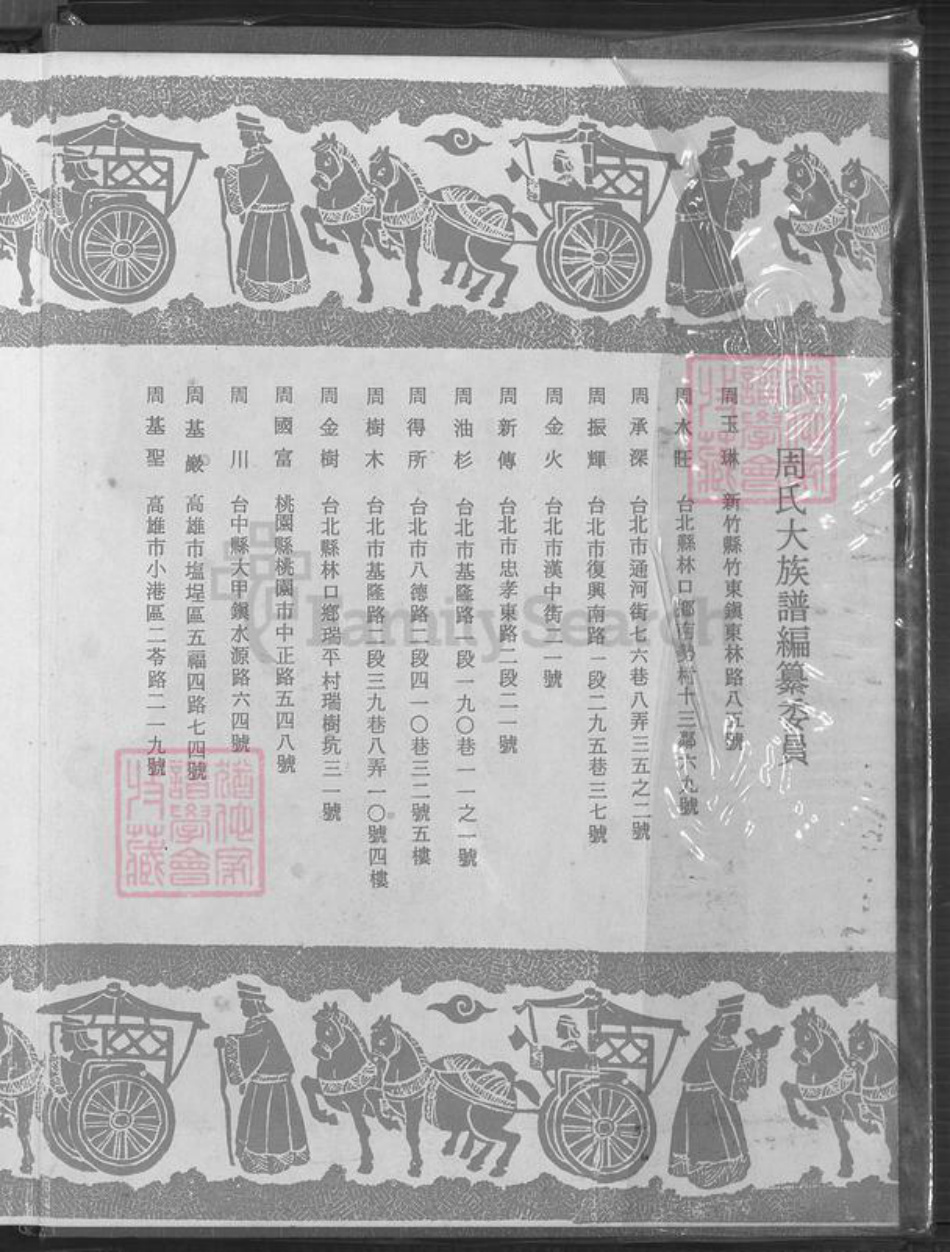 周氏大族譜編纂委員
周玉琳 新竹縣竹東鎭東林路八五號
周水旺 台北縣林口鄉南勢村十三鄰六九號
周承深 台北市通河街七六巷八弄三五之二號
周振輝 台北市復興南路一段二九五巷三七號
周金火 台北市漢中街一二號
周新傳 台北市忠孝東路二段二一號
周油杉 台北市基隆路一段一九〇巷一一之一號
周得所 台北市八德路二段四一〇巷三二號五樓
周樹木 台北市基隆路一段三九巷八弄一〇號四樓
周金樹 台北縣林口鄉瑞平村瑞樹坑三一號
周國富 桃園縣桃園市中正路五四八號
周川 台中縣大甲鎭水源路六四號
周基嚴 高雄市塩埕區五福四路七四號
周基聖 高雄市小港區二苓路二一九號
FamilySearch